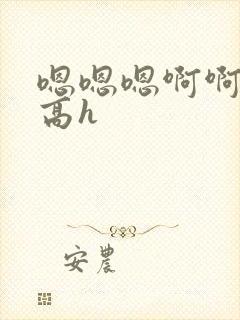 嗯嗯嗯啊啊
高h
安農